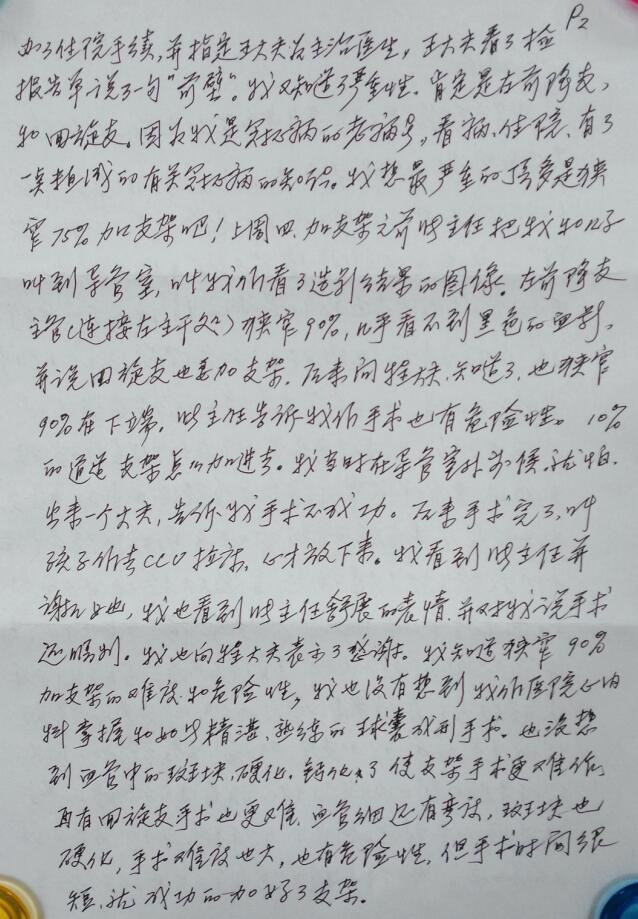 P2
办了住院手续,并指定王大夫为主治医生,王大夫看了检
报告单说了一句“前壁”。我又知道了严重性。肯定是左前降支,
和回旋支。因为我是冠心病的老病号,看病、住院、有了
一些粗浅的有关冠心病的知识。我想最严重的顶多是狭
窄75%加支架吧!上周四,加支架之前 主任把我和儿子
叫到导管室,叫我们看了造影结果的图像。左前降支
主管(连接左主干处)狭窄90%,几乎看不到黑色的血影,
并说回旋支也要加支架。后来问 大夫,知道了,也狭窄
90%在下端。 主任告诉我们手术也有危险性。10%
的通道支架怎么加进去。我当时在导管室外等候,就怕
出来一个大夫,告诉我手术不成功。后来手术完了,叫
孩子们去CCU 拉 ,心才放下来。我看到 主任并
谢 她,我也看到 主任舒展的表情,并对我说手术
还顺利。我也向 大夫表示了感谢。我知道狭窄90%
加支架的难度和危险性,我也没有想到我们医院心内
科掌握 如此精湛、熟练的球囊成形手术。也没想
到血管中的斑块、硬化、钙化,了使支架手术更难做
再有回旋支手术也更难,血管细还有弯度,斑块也
硬化,手术难度也大,也有危险性,但手术时间很
短,就成功的加好了支架。